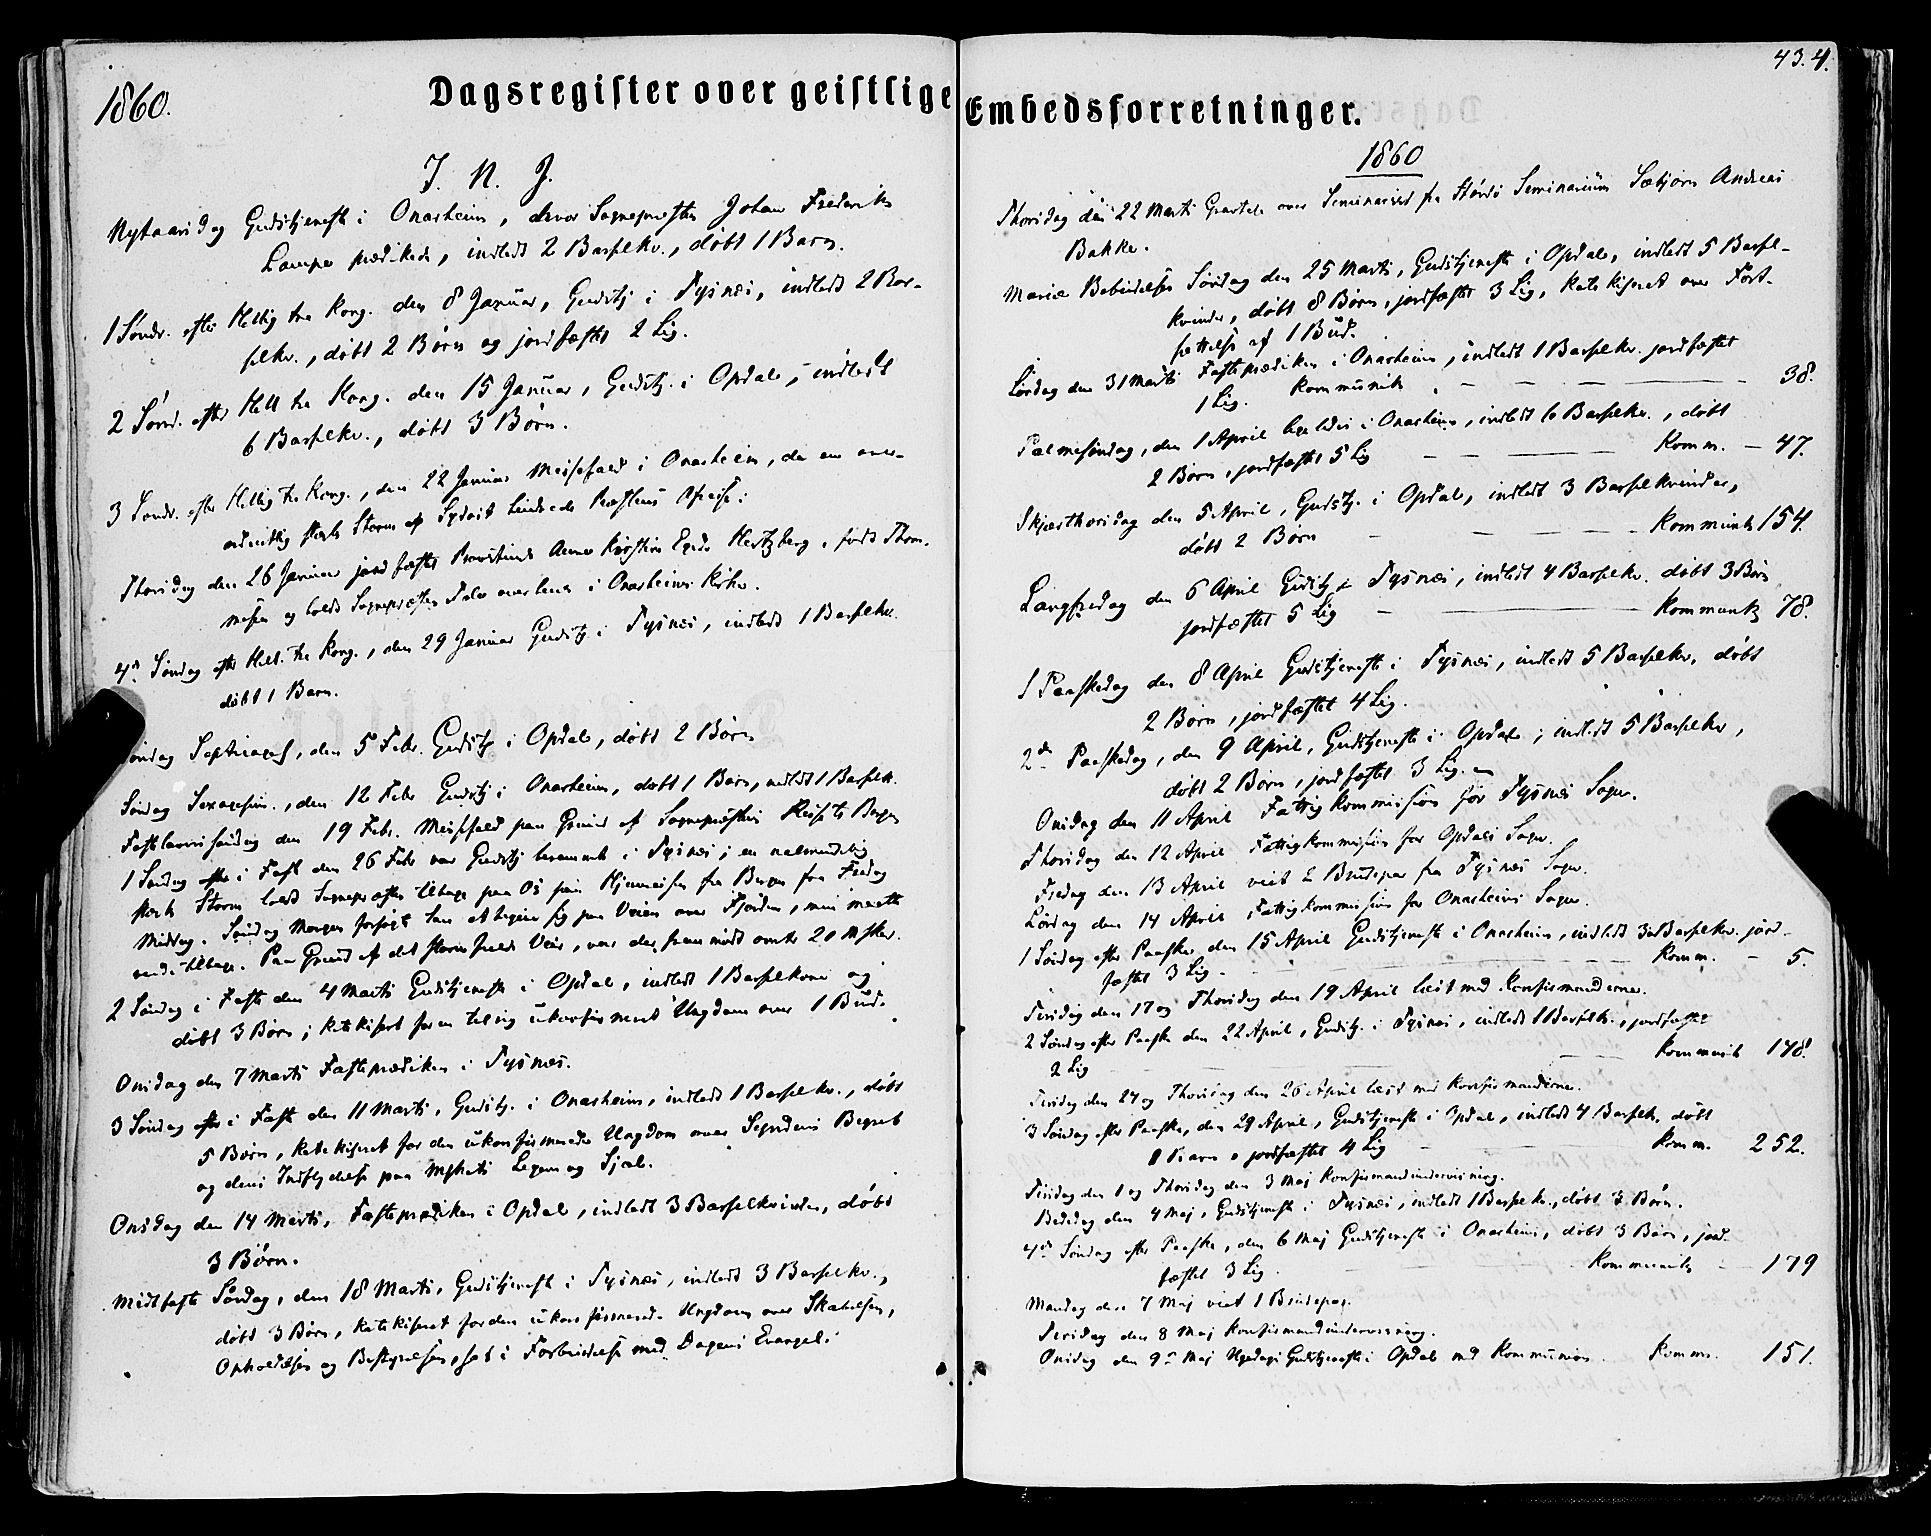 1860.
Dagsregister over geistlige
J. N. J.
Nytaarsdag Gudstjeneste i Onarheim, hvor Sognepresten Johan Frederik
Lampe prædikede, indledt 2 Barselkv., døbt 1 Barn.
1 Søndr. efter Hellig tre Kong. den 8 Januar, Gudstj i Tysnæs, indledt 2 Bar-
selkv., døbt 2 Børn og jordfæstet 2 Lig.
2 Sønd. efter Hell tre Kong. den 15 Januar, Gudstj. i Opdal, indledt
6 Barselkv., døbt 3 Børn.
3 Søndr. efter Hellig tre Kong., den 22 Januar Messefald i Onarheim, da en over-
ordentlig stærk Storm af Sydost hindrede Præstens Afreise.
Thorsdag den 26 Januar jordfæstet Provstinde Anne Kirstine Egede Hertzberg, født Thom-
mesen og holdt Sognepræsten Tale over hende i Onarheims Kirke.
4de Søndag efter Hell. tre Kong., den 29 Januar Gudstj i Tysnæs, indledt 1 Barselkv.
døbt 1 Barn.
Søndag Septuages, den 5 Febr. Gudstj i Opdal, døbt 2 Børn
Søndag Sexagesim., den 12 Febr Gudstj i Onarheim, døbt 1 Barn, indledt 1 Barselk.
Fastelavnssøndag den 19 Febr. Messefald paa Grund af Sognepræstens Reise til Bergen
1 Søndag efter i Fast den 26 Febr var Gudstj berammet i Tysnæs; en ualmindelig
stærk Storm holdt Sognepræsten tilbage paa Os paa Hjemreisen fra Bergen fra Fredag
Middag. Søndag Morgen forsøgte han at begive sig paa Veien over Fjorden, men maatte
vende tilbage. Paa Grund af det stormfulde Veir, var der fremmødt omtr 20 Msker.
2 Søndag i Faste den 4 Marts Gudstjeneste i Opdal, indledt 1 Barselkone og
døbt 3 Børn; katekiseret for en talrig ukonfirmeret Ungdom over 1 Bud.
Onsdag den 7 Marts Fasteprædiken i Tysnæs.
3 Søndag efter i Fast den 11 Marts, Gudstj. i Onarheim, indledt 1 Barselkv., døbt
5 Børn, katekiseret for den ukonfirmerede Ungdom over Syndens Begreb
og dens Indflydelse paa Mskets Legem og Sjæl.
Onsdag den 14 Marts, Fasteprædiken i Opdal, indledt 3 Barselkvinder, døbt
3 Børn.
Midtfaste Søndag, den 18 Marts, Gudstjeneste i Tysnæs, indledt 3 Barselkv.,
døbt 3 Børn, katekiseret for den ukonfirmerede Ungdom over Skabelsen,
Opholdelsen og Bestyrelsen, sat i Forbindelse med Dagens Evangel.
43. 4.
Embedsforretninger.
1860
Thorsdag den 22 Marts over Seminarist fra Stords Seminarium Sæbjørn Andreas
Bakke.
Mariæ Bebudelses Søndag den 25 Marts, Gudstjeneste i Opdal, indledt 5 Barsel-
kvinder, døbt 8 Børn, jordfæstet 3 Lig, katekiseret over Fort-
sættelse af 1 Bud.
Lørdag den 31 Marts Fasteprædiken i Onarheim, indledt 1 Barselkv. jordfæstet
1 Lig. Kommunik. — — — 38.
Palmesøndag, den 1 April ligeledes i Onarheim, indledt 6 Barselkv., døbt
2 Børn, jordfæstet 5 Lig — — — Komm. — 47.
Skjærthorsdag den 5 April, Gudstj. i Opdal, indledt 3 Barselkvinder,
døbt 2 Børn — — — Kommunk 154.
Langfredag den 6 April Gudstj i Tysnæs, indledt 4 Barselkv. døbt 3 Børn
jordfæstet 5 Lig — — — Kommunk 78.
1 Paaskedag den 8 April Gudstjeneste i Tysnæs, indledt 5 Barselkv. døbt
2 Børn, jordfæstet 4 Lig.
2de Paaskedag, den 9 April, Gudstjeneste i Opdal, indledt 5 Barselkv,
døbt 2 Børn, jordfæstet 3 Lig.
Onsdag den 11 April Fattigkommission for Tysnæs Sogn.
Thorsdag den 12 April Fattigkommission for Opdals Sogn.
Fredag den 13 April viet 2 Brudepar fra Tysnæs Sogn.
Lørdag den 14 April Fattigkommission for Onarheims Sogn.
1 Søndag efter Paaske den 15 April Gudstjeneste i Onarheim, indledt 3 Barselkv. jord-
fæstet 3 Lig. — — — Komm. — 5.
Tirsdag den 17 og Thorsdag den 19 April læst med Konfirmanderne.
2 Søndag efter Paaske den 22 April, Gudstj. i Tysnæs, indledt 1 Barselk., jordfæstet
2 Lig — — — Kommunik 178.
Tirsdag den 24 og Thorsdag den 26 April læst med Konfirmanderne.
3 Søndag efter Paaske, den 29 April, Gudstjeneste i Opdal, indledt 4 Barselk. døbt
1 Barn, jordfæstet 4 Lig — Komm. 252.
Tirsdag den 1 og Thorsdag den 3 Maj Konfirmandundervisning.
Bededag den 4 Maj, Gudstjeneste i Tysnæs, indledt 1 Barselkv., døbt 3 Børn.
4de Søndag efter Paaske, den 6 Maj Gudstjeneste i Onarheim, døbt 3 Børn, jord-
fæstet 3 Lig. Kommunik — 179
Mandag den 7 Maj viet 1 Brudepar.
Tirsdag den 8 Maj Konfirmandundervisning.
Onsdag den 9de Maj Ugedags Gudstjeneste i Opdal med Kommunion. Komm. 151.